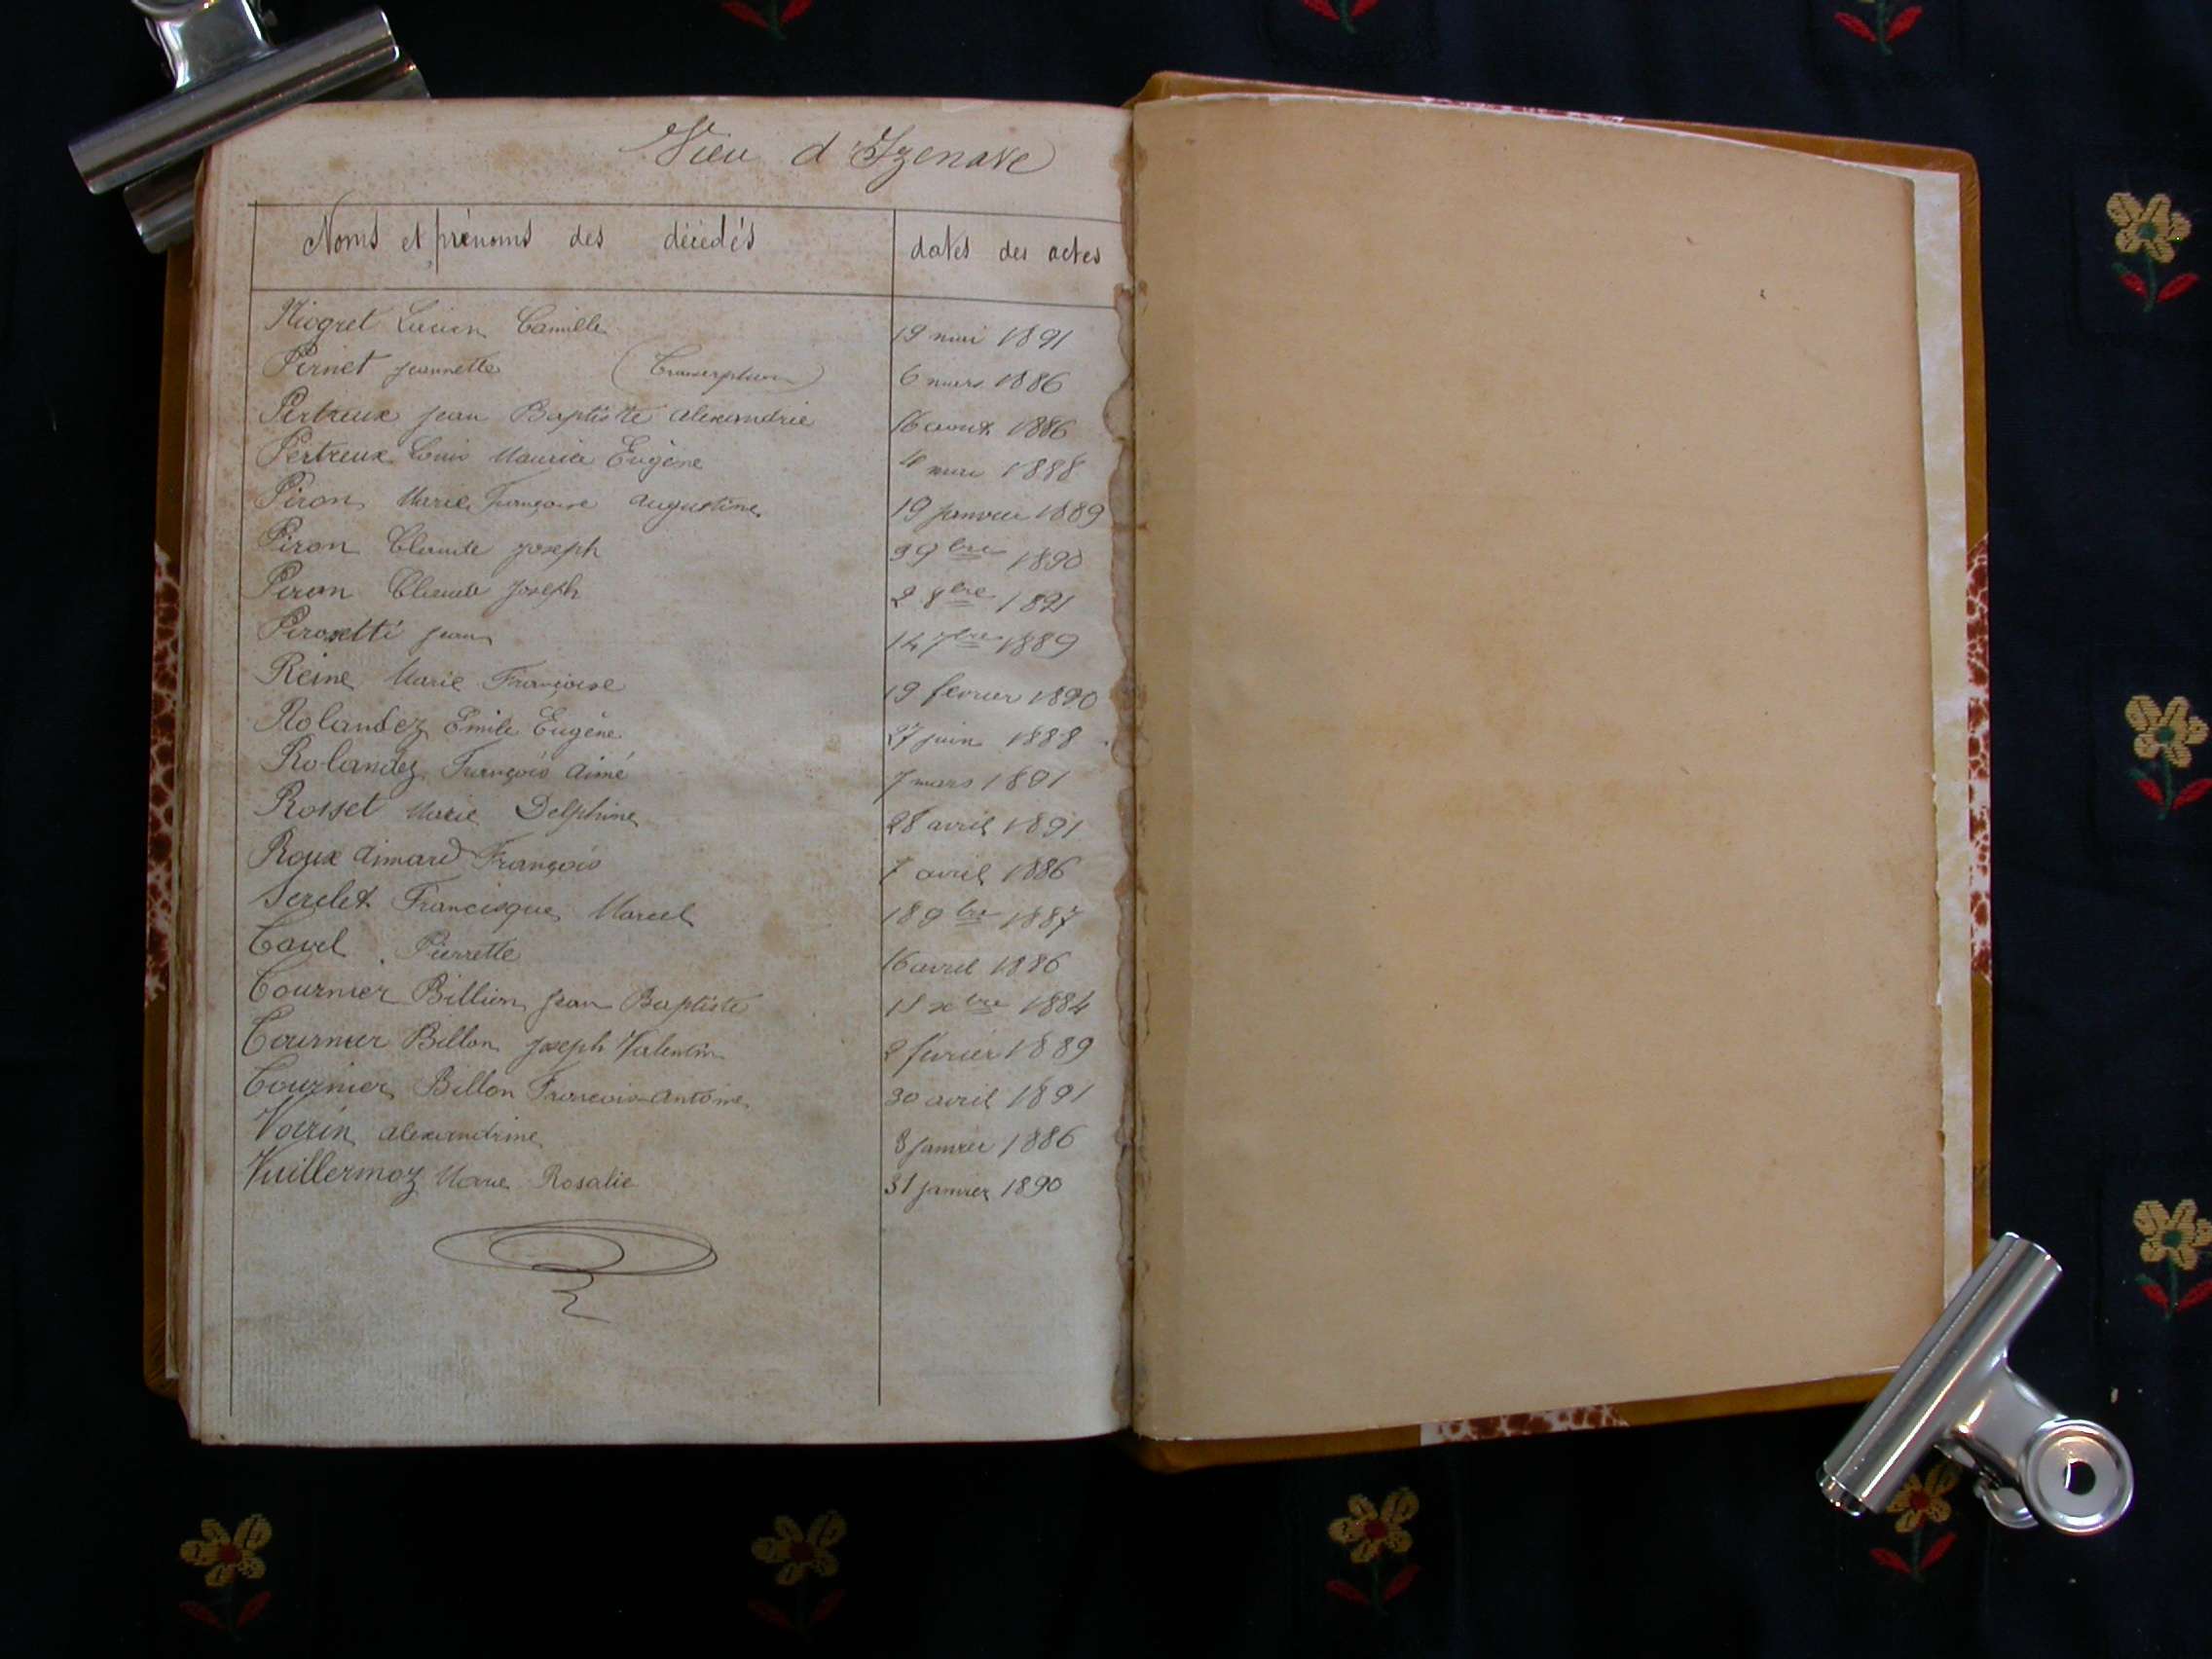 Vieu d'Izenave
Noms et prénoms des décédés dates des actes
Niogret Lucien Camille 19 mai 1891
Pernet Jeannette (Transcription) 6 mars 1886
Pertreux Jean Baptiste Alexandrie 16 aout 1886
Pertreux Louis Maurice Eugène 4 1888
Piron Marie Françoise Augustine 19 janvier 1889
Piron Claude Joseph 3 9bre 1890
Piron Claude Joseph 2 8bre 1891
Pirosetti Jean 14 7bre 1889
Reine Marie Françoise 19 fevrier 1890
Rolandez Emile Eugène 27 juin 1888
Rolandez François Aimé 7 mars 1891
Rosset Marie Delphine 28 avril 1891
Roux Aimard François 7 avril 1886
Serclet Francisque Marcel 18 9bre 1887
Tavel Pierrette 16 avril 1886
Tournier Billion Jean Baptiste xbre 1884
Tournier Billon Joseph Valentin 2 février 1889
Tournier Billon François Antoine 30 avril 1891
Voirin Alexandrine 8 janvier 1886
Vuillermoz Marie Rosalie 31 janvier 1890